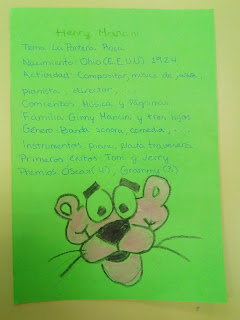 Henry Mancini
Tema: La Pantera Rosa
Nacimiento: Ohio (E.E.U.U) 1924
Actividad: Compositor, música de
pianista, director, ...
Comienzos: Música y
Familia: Ginny Mancini y tres hijos
Género: Banda sonora, comedia, ...
Instrumentos: piano, flauta travesera
Primeros éxitos: Tom y Jerry
Premios: Oscar (4), Grammy